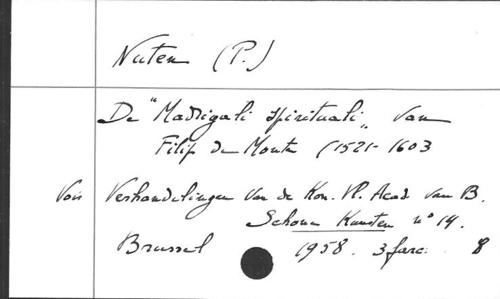 Nuten (P.)
De "Madrigali spirituali" van
Filip de Monte (1521-1603
Vois Verhandelingen van de Kon. Vl. Acad van B.
Schone Kunsten n° 14.
Brussel 1958. 3 fasc. 8